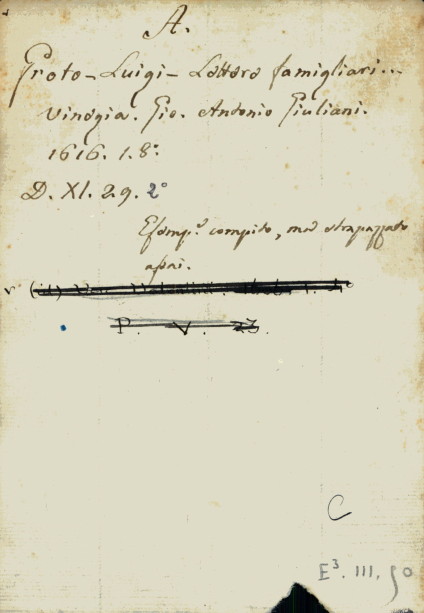 A.
Groto - Luigi - Lettere famigliari...
Vinegia. Gio. Antonio Giuliani.
1616. 1. 8°.
D. XI. 29. 2°
Esemp.e compito, ma strapazzato
assai.
P. V. 23.
C
E³. III, 50